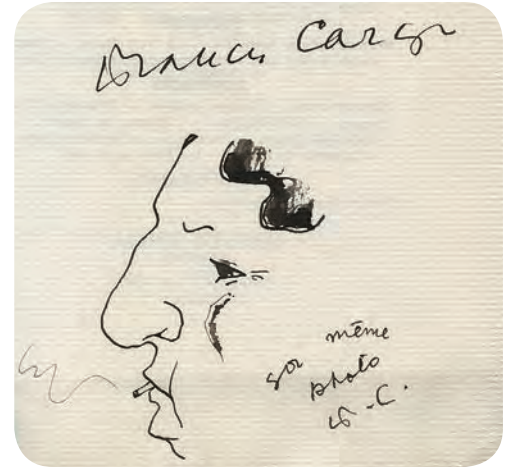 Francis Carco
même
photo
F.-C.